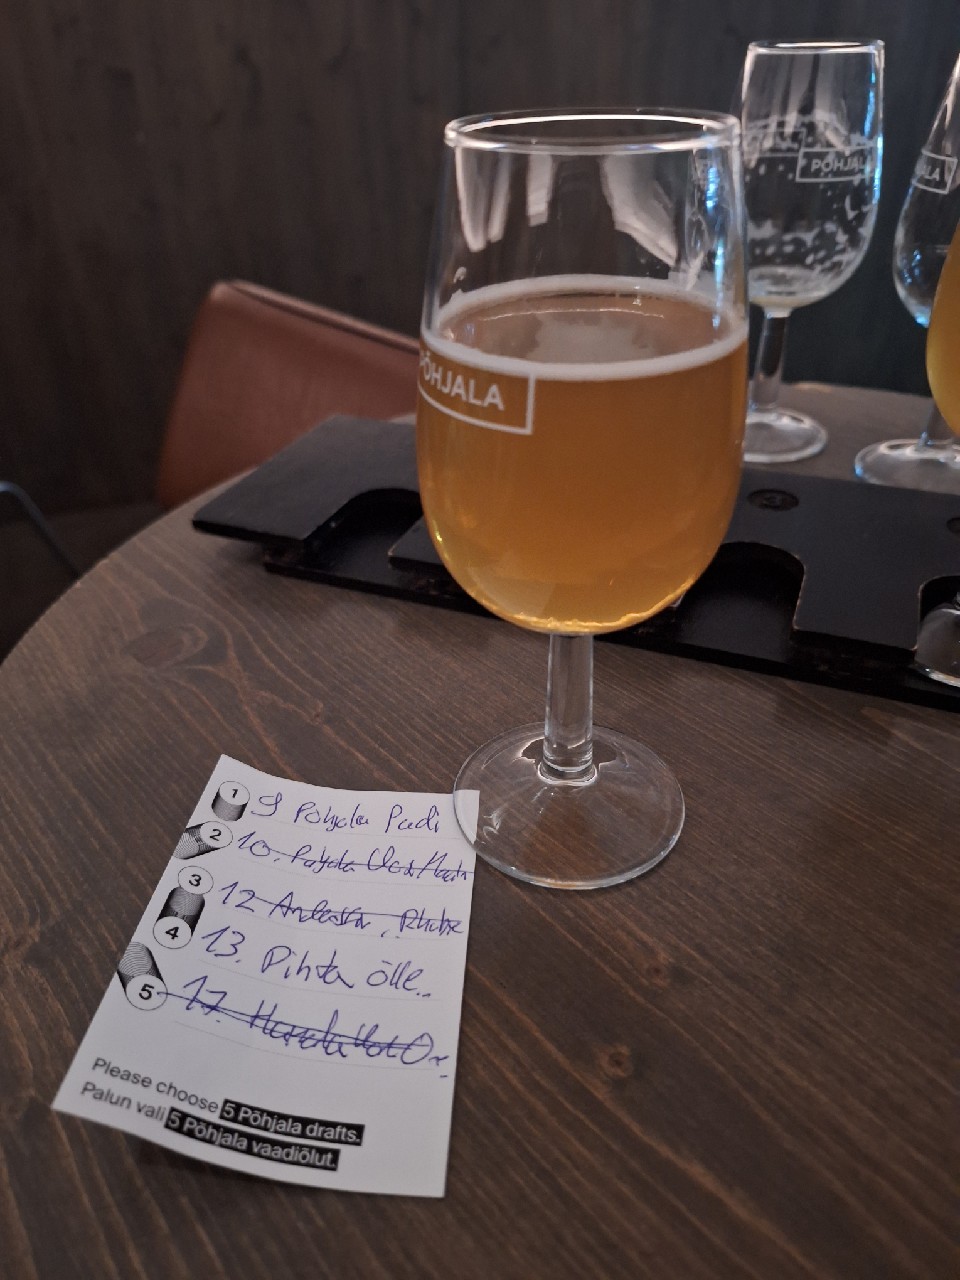 PÕHJAL
ALA
PÕHJALA
1 9 Põhjala Padi
2 10. Põhjala
3 12
4 13. Pihta õlle..
5 17.
Please choose 5 Põhjala drafts.
Palun vali 5 Põhjala vaadiõlut.